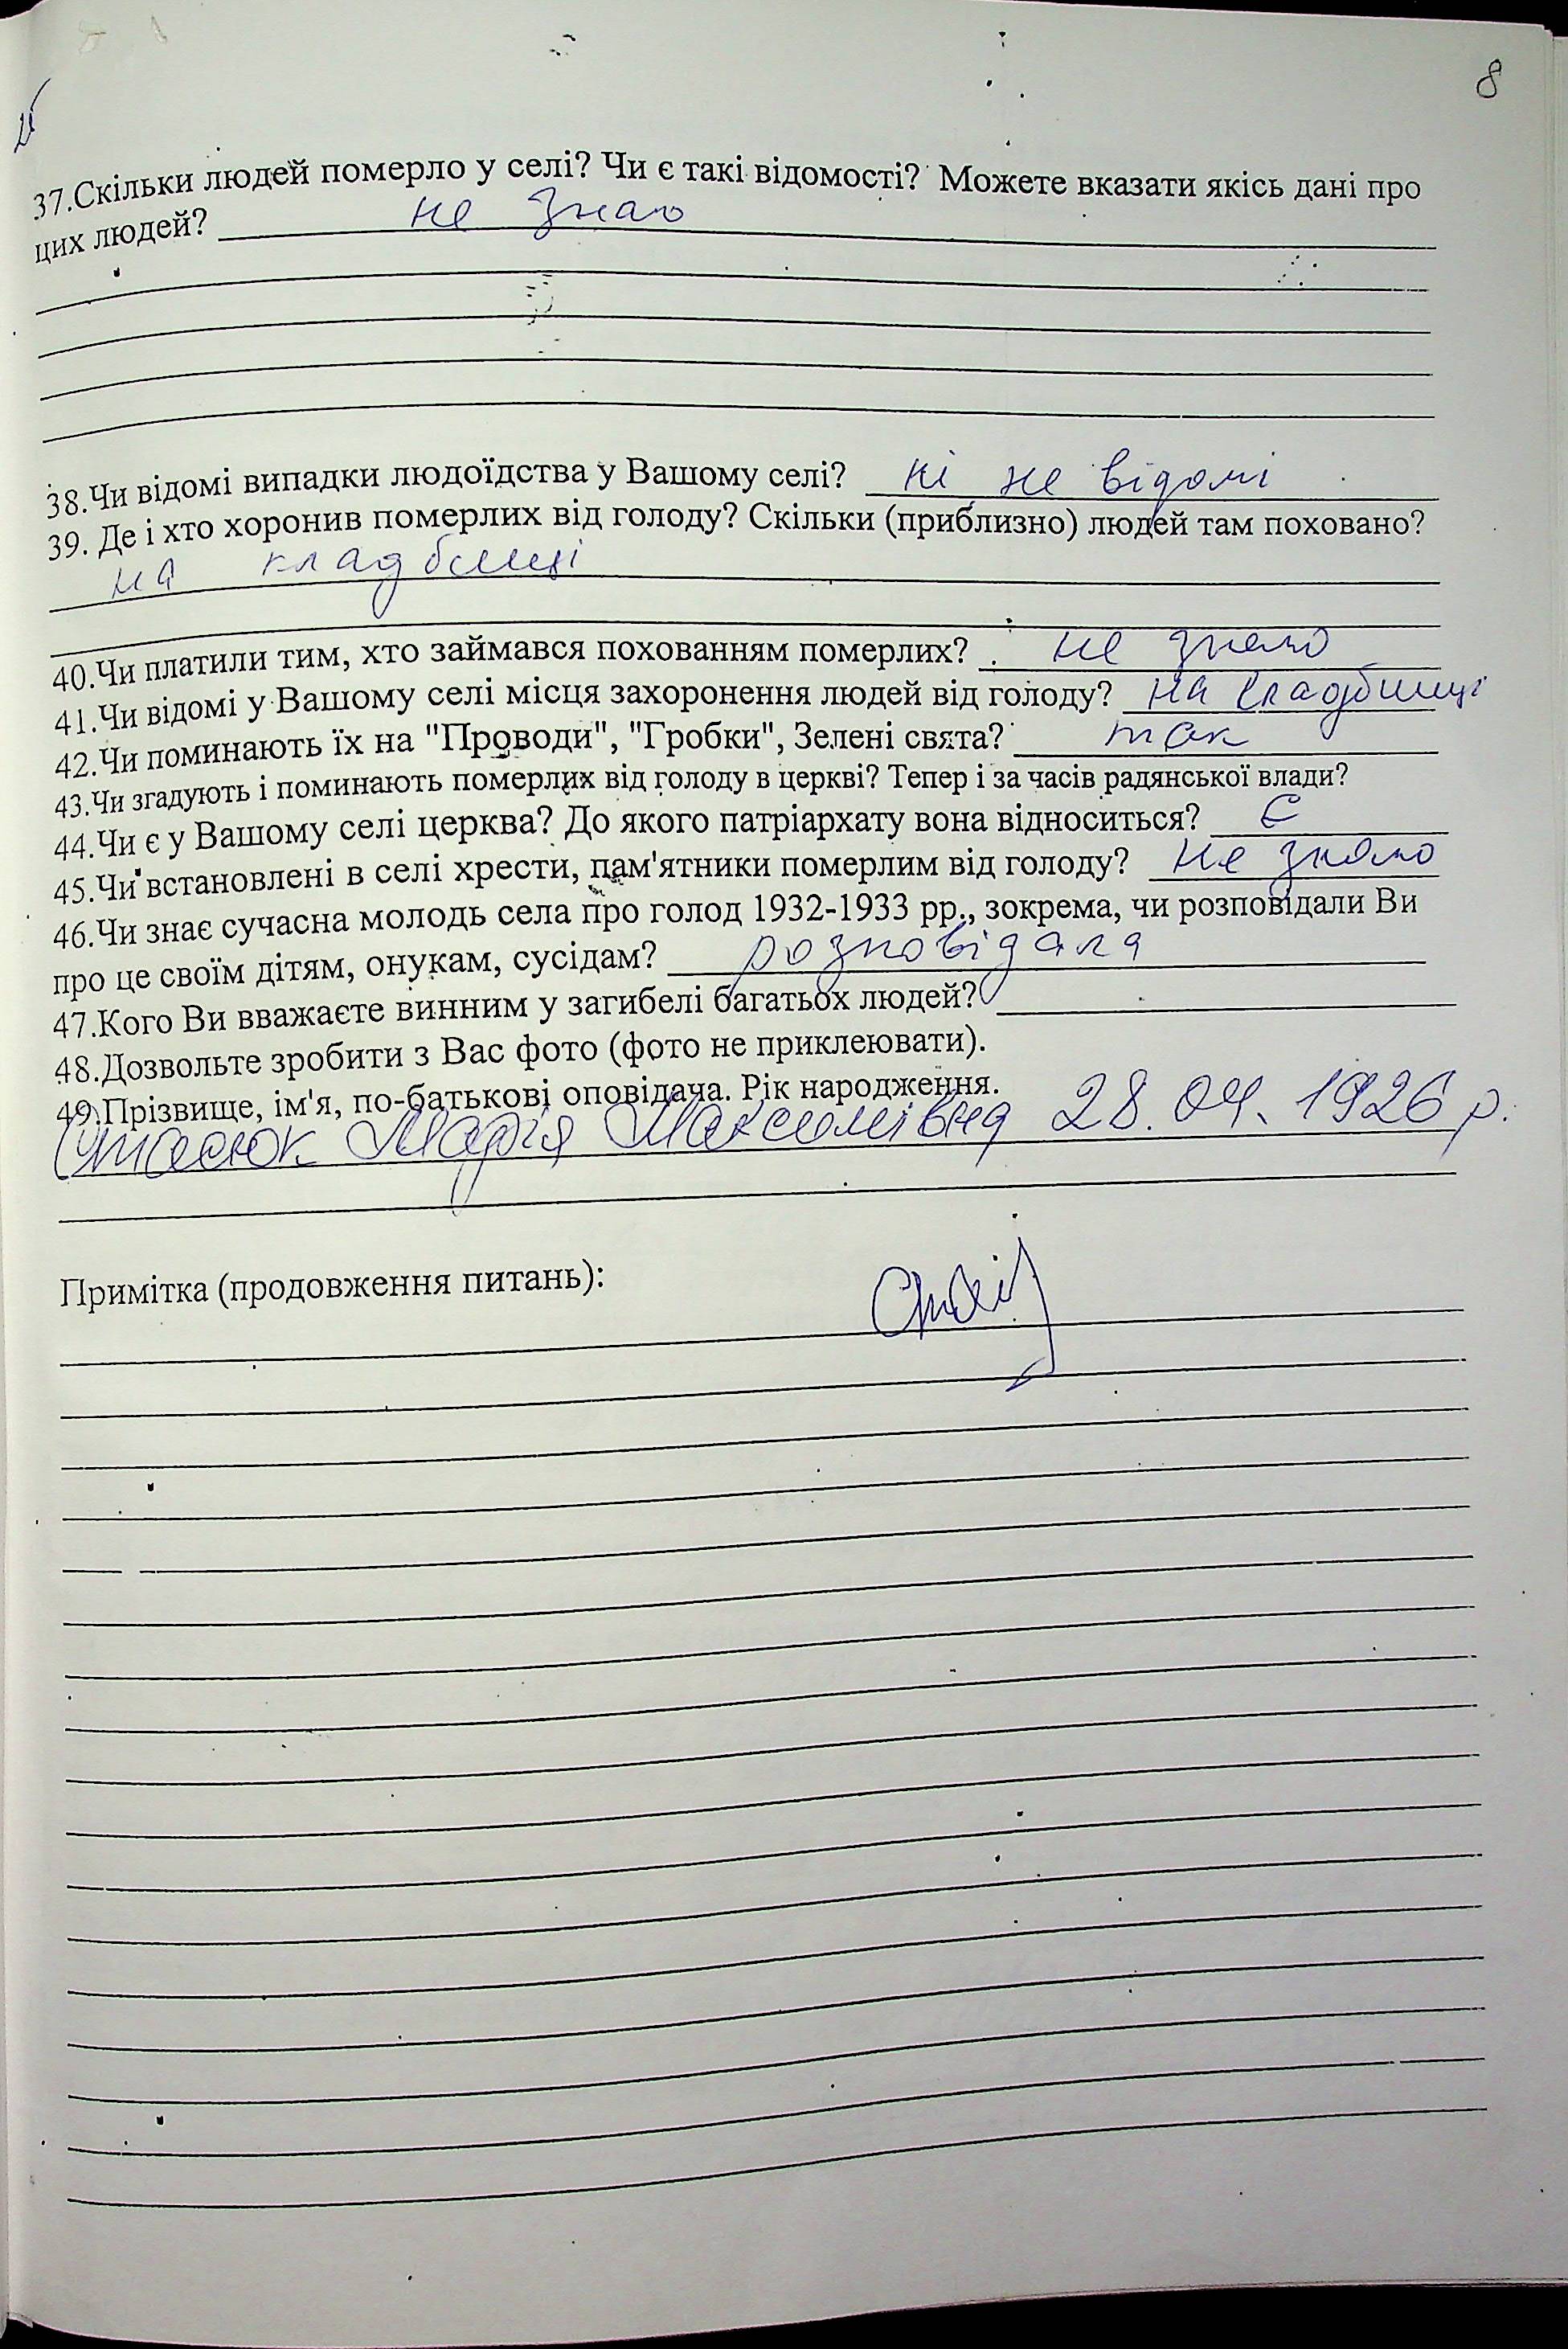 8
37.Скільки людей померло у селі? Чи є такі відомості? Можете вказати якісь дані про
цих людей? не знаю
38.Чи відомі випадки людоїдства у Вашому селі? ні не відомі
39. Де і хто хоронив померлих від голоду? Скільки (приблизно) людей там поховано?
на кладбищі
40.Чи платили тим, хто займався похованням померлих? не знаю
41.Чи відомі у Вашому селі місця захоронення людей від голоду? на кладбищі
42.Чи поминають їх на "Проводи", "Гробки", Зелені свята? так
43.Чи згадують і поминають померлих від голоду в церкві? Тепер і за часів радянської влади?
44.Чи є у Вашому селі церква? До якого патріархату вона відноситься? Є
45.Чи встановлені в селі хрести, пам'ятники померлим від голоду? не знаю
46.Чи знає сучасна молодь села про голод 1932-1933 рр., зокрема, чи розповідали Ви
про це своїм дітям, онукам, сусідам? розповідала
47.Кого Ви вважаєте винним у загибелі багатьох людей?
48.Дозвольте зробити з Вас фото (фото не приклеювати).
49.Прізвище, ім'я, по-батькові оповідача. Рік народження.
Стасюк Марія Максимівна 28.04.1926 р.
Примітка (продовження питань):